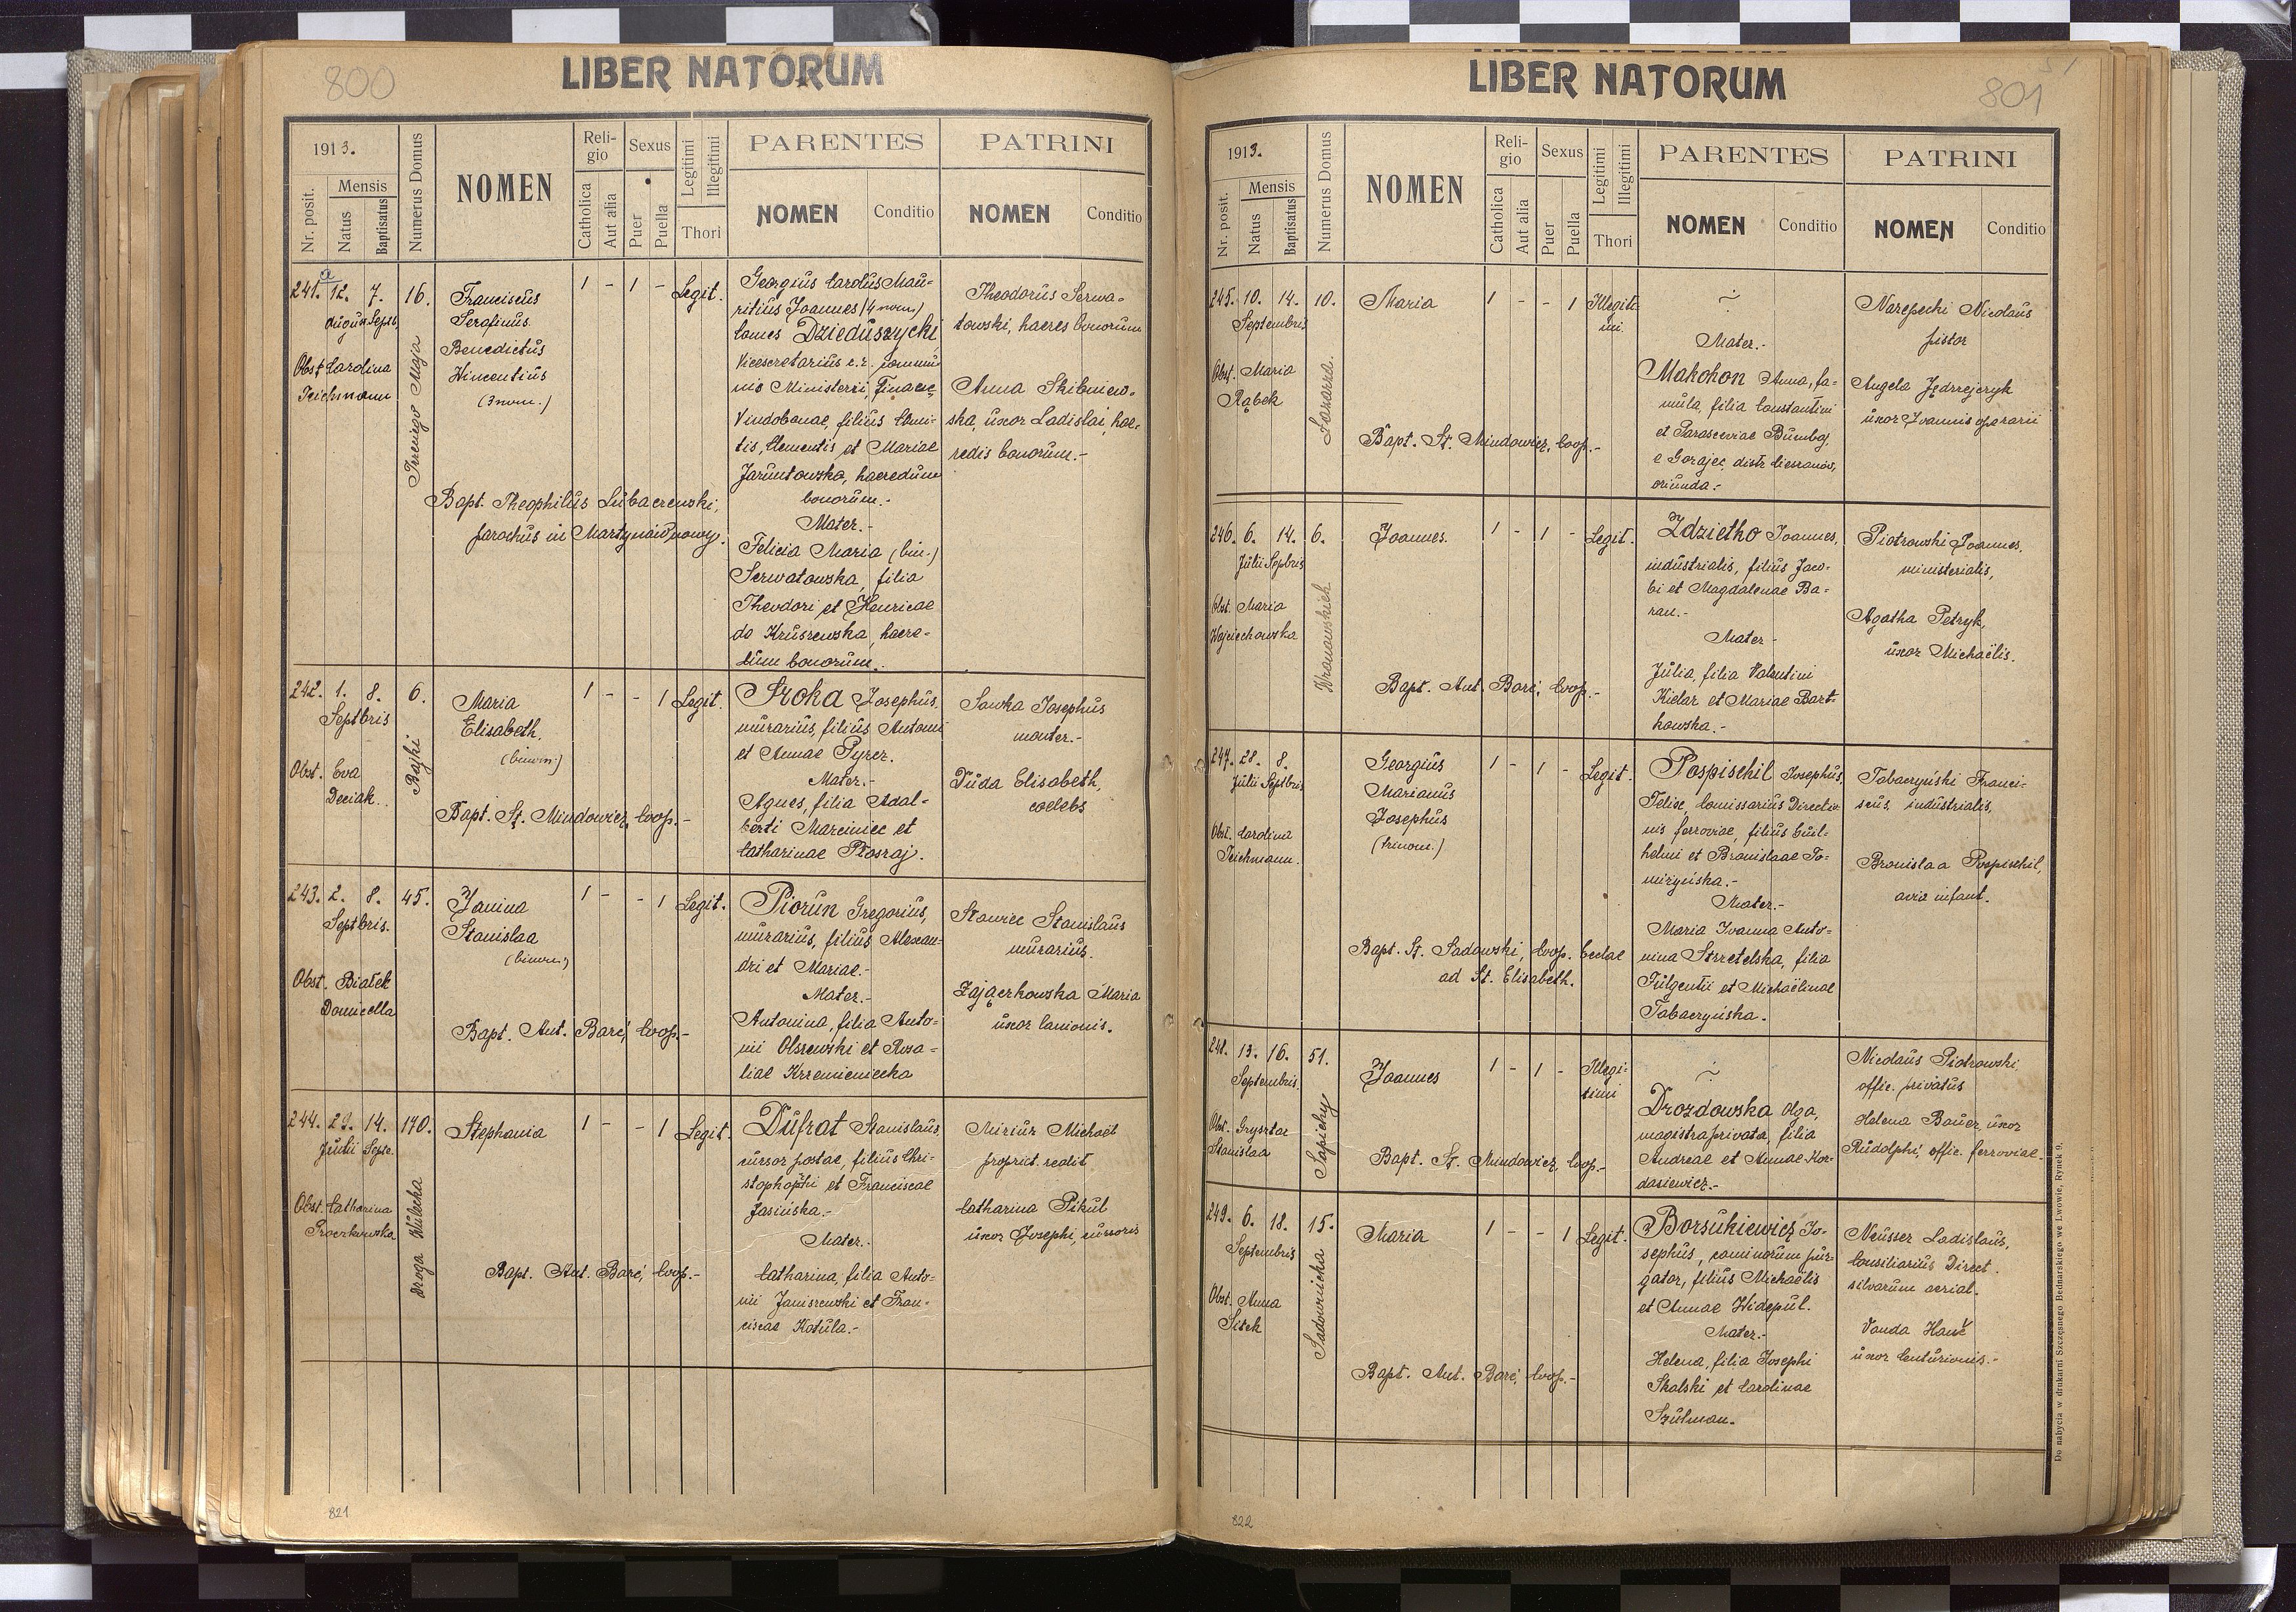 800
LIBER NATORUM
1913.
Nr. posit.
Mensis
Natus
Baptisatus
Numerus Domus
NOMEN
Religio
Catholica
Aut alia
Sexus
Puer
Puella
Legitimi
Illegitimi
Thori
PARENTES
NOMEN
Conditio
PATRINI
NOMEN
Conditio
241. 12. 7. 16.
August Septs
Obst. Carolina
Teichmann
Trzeciego Maja
Franciscus
Serafinus
Benedictus
Vincentius
(3nom.)
1 - 1 - Legit.
Bapt. Theophilus Lubaczewski,
parochus in Martynów nowy.
Georgius Carolus Mau-
ritius Joannes (4 nom)
Comes Dzieduszycki
Vicesecretarius c.r. commu-
nis Ministerii Financ.
Vindobonae, filius Comi-
tis, Clementis et Mariae
Jaruntowska, haeredum
bonorum.-
Mater.-
Felicia Maria (bin.)
Serwatowska, filia
Theodori et Henricae
de Kruszewska, haere-
dum bonorum.
Theodorus Serwa-
towski, haeres bonorum
Anna Skibniew-
ska, uxor Ladislai, hae-
redis bonorum.-
242. 1. 8. 6.
Septbris
Obst. Eva
Deciak.
Bajki
Maria
Elisabeth.
(binom.)
1 - - 1 Legit.
Bapt. St. Mindowicz, Coop.-
Sroka Josephus,
murarius, filius Antoni
et Annae Pyrez.
Mater.-
Agnes, filia Adal-
berti Marciniec et
Catharinae Płosraj.
Sawka Josephus
monter.-
Duda Elisabeth,
coelebs
243. 2. 8. 45.
Septbris.
Obst. Białek
Domicella
Janina
Stanislaa
(binom.)
1 - - 1 Legit.
Bapt. Ant. Barć, Coop.-
Piorun Gregorius,
murarius, filius Alexan-
dri et Mariae.-
Mater.-
Antonina, filia Anto-
nii Olszewski et Rosa-
liae Krzemieniecka
Stawiec Stanislaus
murarius.
Zajączkowska Maria
uxor lanionis.
244. 29. 14. 170.
Julii Septe.
Obst. Catharina
Proczkowska
Droga Wulecka
Stephania
1 - - 1 Legit.
Bapt. Ant. Barć, Coop.-
Dufrat Stanislaus
cursor postae, filius Chri-
stophori et Franciscae
Jasińska.-
Mater.-
Catharina, filia Anto-
nii Janiszewski et Fran-
ciscae Kotula.-
Mirius Michael
propriet. realit.
Catharina Pikul
uxor Josephi, cursoris
821
801
LIBER NATORUM
1913.
Nr. posit.
Mensis
Natus
Baptisatus
Numerus Domus
NOMEN
Religio
Catholica
Aut alia
Sexus
Puer
Puella
Legitimi
Illegitimi
Thori
PARENTES
NOMEN
Conditio
PATRINI
NOMEN
Conditio
245. 10. 14. 10.
Septembris
Obst. Maria
Rąbek
Łazarza.
Maria
1 - - 1 Illegiti-
mi.
Bapt. St. Mindowicz, Coop.-
Mater.-
Makohon Anna, fa-
mula, filia Constantini
et Parasceviae Bumbaj,
e Gorajec, distr. Cieszanów,
oriunda.-
Narepecki Nicolaus
pistor
Angela Jędrzejczyk
uxor Joannis operarii
246. 6. 14. 6.
Julii Sepbris
Obst. Maria
Wojciechowska
Wronowskich
Joannes.
1 - 1 - Legit.
Bapt. Ant. Barć, Coop.-
Zdziełko Joannes,
industrialis, filius Jaco-
bi et Magdalenae Ba-
ran.-
Mater.-
Julia, filia Valentini
Kielar et Mariae Bart-
kowska.-
Piotrowski Joannes,
ministerialis,
Agatha Petryk,
uxor Michaëlis.
247. 28. 8.
Julii Septbris
Obst. Carolina
Teichmann.
Georgius
Marianus
Josephus
(trinom.)
1 - 1 - Legit.
Bapt. St. Sadowski, Coop. Eccl̄ae
ad St. Elisabeth.
Pospischil Josephus,
Felix, Comissarius Directio-
nis ferroviae, filius Guil-
helmi et Bronislaae To-
mirzyńska.-
Mater.-
Maria Joanna Anto-
nina Strzetelska, filia
Fulgentii et Michaëlinae
Tabaczyńska.
Tabaczyński Franci-
scus, industrialis,
Bronislaa Pospischil,
avia infant.
248. 13. 16. 51.
Septembris
Obst. Grysztac
Stanislaa
Sapiehy
Joannes
1 - 1 - Illegi-
timi
Bapt. St. Mindowicz, Coop.-
Drozdowska Olga,
magistra privata, filia
Andreae et Annae Kor-
dasiewicz.-
Nicolaus Piotrowski
offic. privatus
Helena Bauer, uxor
Rudolphi, offic. ferroviae.
249. 6. 18. 15.
Septembris
Obst. Anna
Sitek
Sadownicka
Maria
1 - - 1 Legit.
Bapt. Ant. Barć, Coop.-
Borsukiewicz Jo-
sephus, caminorum pur-
gator, filius Michaëlis
et Annae Widepul.
Mater.-
Helena, filia Josephi
Skalski et Carolinae
Szulman.
Neusser Ladislaus,
Consiliarius Direct.
silvarum aerial.
Vanda Hauč
uxor Centurionis.-
Do nabycia w drukarni Szczęsnego Bednarskiego we Lwowie, Rynek 9.
822